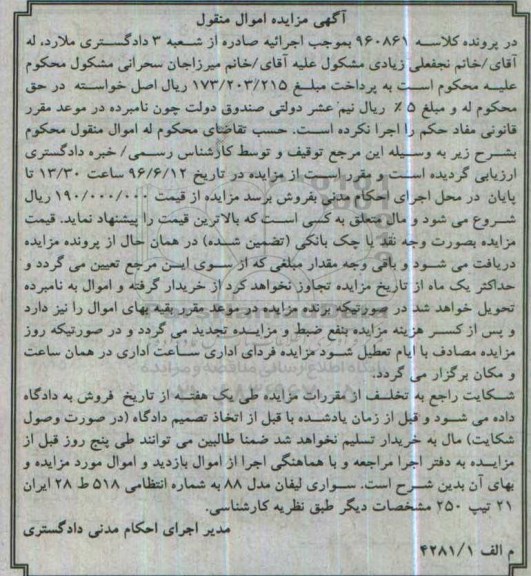 آگهی مزایده اموال منقول
در پرونده کلاسه ۹۶۰۸۶۱ بموجب اجرائیه صادره از شعبه ۳ دادگستری ملارد، له
آقای/خانم نجفعلی زیادی مشکول علیه آقای/خانم میرزاجان سحرانی مشکول محکوم
علیه محکوم است به پرداخت مبلغ ۱۷۳/۲۰۳/۲۱۵ ریال اصل خواسته در حق
محکوم له و مبلغ ۵٪ ریال نیم عشر دولتی صندوق دولت چون نامبرده در موعد مقرر
قانونی مفاد حکم را اجرا نکرده است. حسب تقاضای محکوم له اموال منقول محکوم
بشرح زیر به وسیله این مرجع توقیف و توسط کارشناس رسمی/ خبره دادگستری
ارزیابی گردیده است و مقرر است از مزایده در تاریخ ۹۶/۶/۱۲ ساعت ۱۳/۳۰ تا
پایان در محل اجرای احکام مدنی بفروش برسد مزایده از قیمت ۱۹۰/۰۰۰/۰۰۰ ریال
شروع می شود و مال متعلق به کسی است که بالاترین قیمت را پیشنهاد نماید. قیمت
مزایده بصورت وجه نقد یا چک بانکی (تضمین شده) در همان حال از پرونده مزایده
دریافت می شود و باقی وجه مقدار مبلغی که از سوی این مرجع تعیین می گردد و
حداکثر یک ماه از تاریخ مزایده تجاوز نخواهد کرد از خریدار گرفته و اموال به نامبرده
تحویل خواهد شد در صورتیکه برنده مزایده در موعد مقرر بقیه بهای اموال را نیز دارد
و پس از کسر هزینه مزایده بنفع ضبط و مزایده تجدید می گردد و در صورتیکه روز
مزایده مصادف با ایام تعطیل شود مزایده فردای اداری ساعت اداری در همان ساعت
و مکان برگزار می گردد.
شکایت راجع به تخلف از مقررات مزایده طی یک هفته از تاریخ فروش به دادگاه
داده می شود و قبل از زمان یادشده با قبل از اتخاذ تصمیم دادگاه (در صورت وصول
شکایت) مال به خریدار تسلیم نخواهد شد ضمنا طالبین می توانند طی پنج روز قبل از
مزایده به دفتر اجرا مراجعه و با هماهنگی اجرا از اموال بازدید و اموال مورد مزایده و
بهای آن بدین شرح است. سواری لیفان مدل ۸۸ به شماره انتظامی ۵۱۸ ط ۲۸ ایران
۲۱ تیپ ۲۵۰ مشخصات دیگر طبق نظریه کارشناسی.
مدیر اجرای احکام مدنی دادگستری
م الف ۴۲۸۱/۱